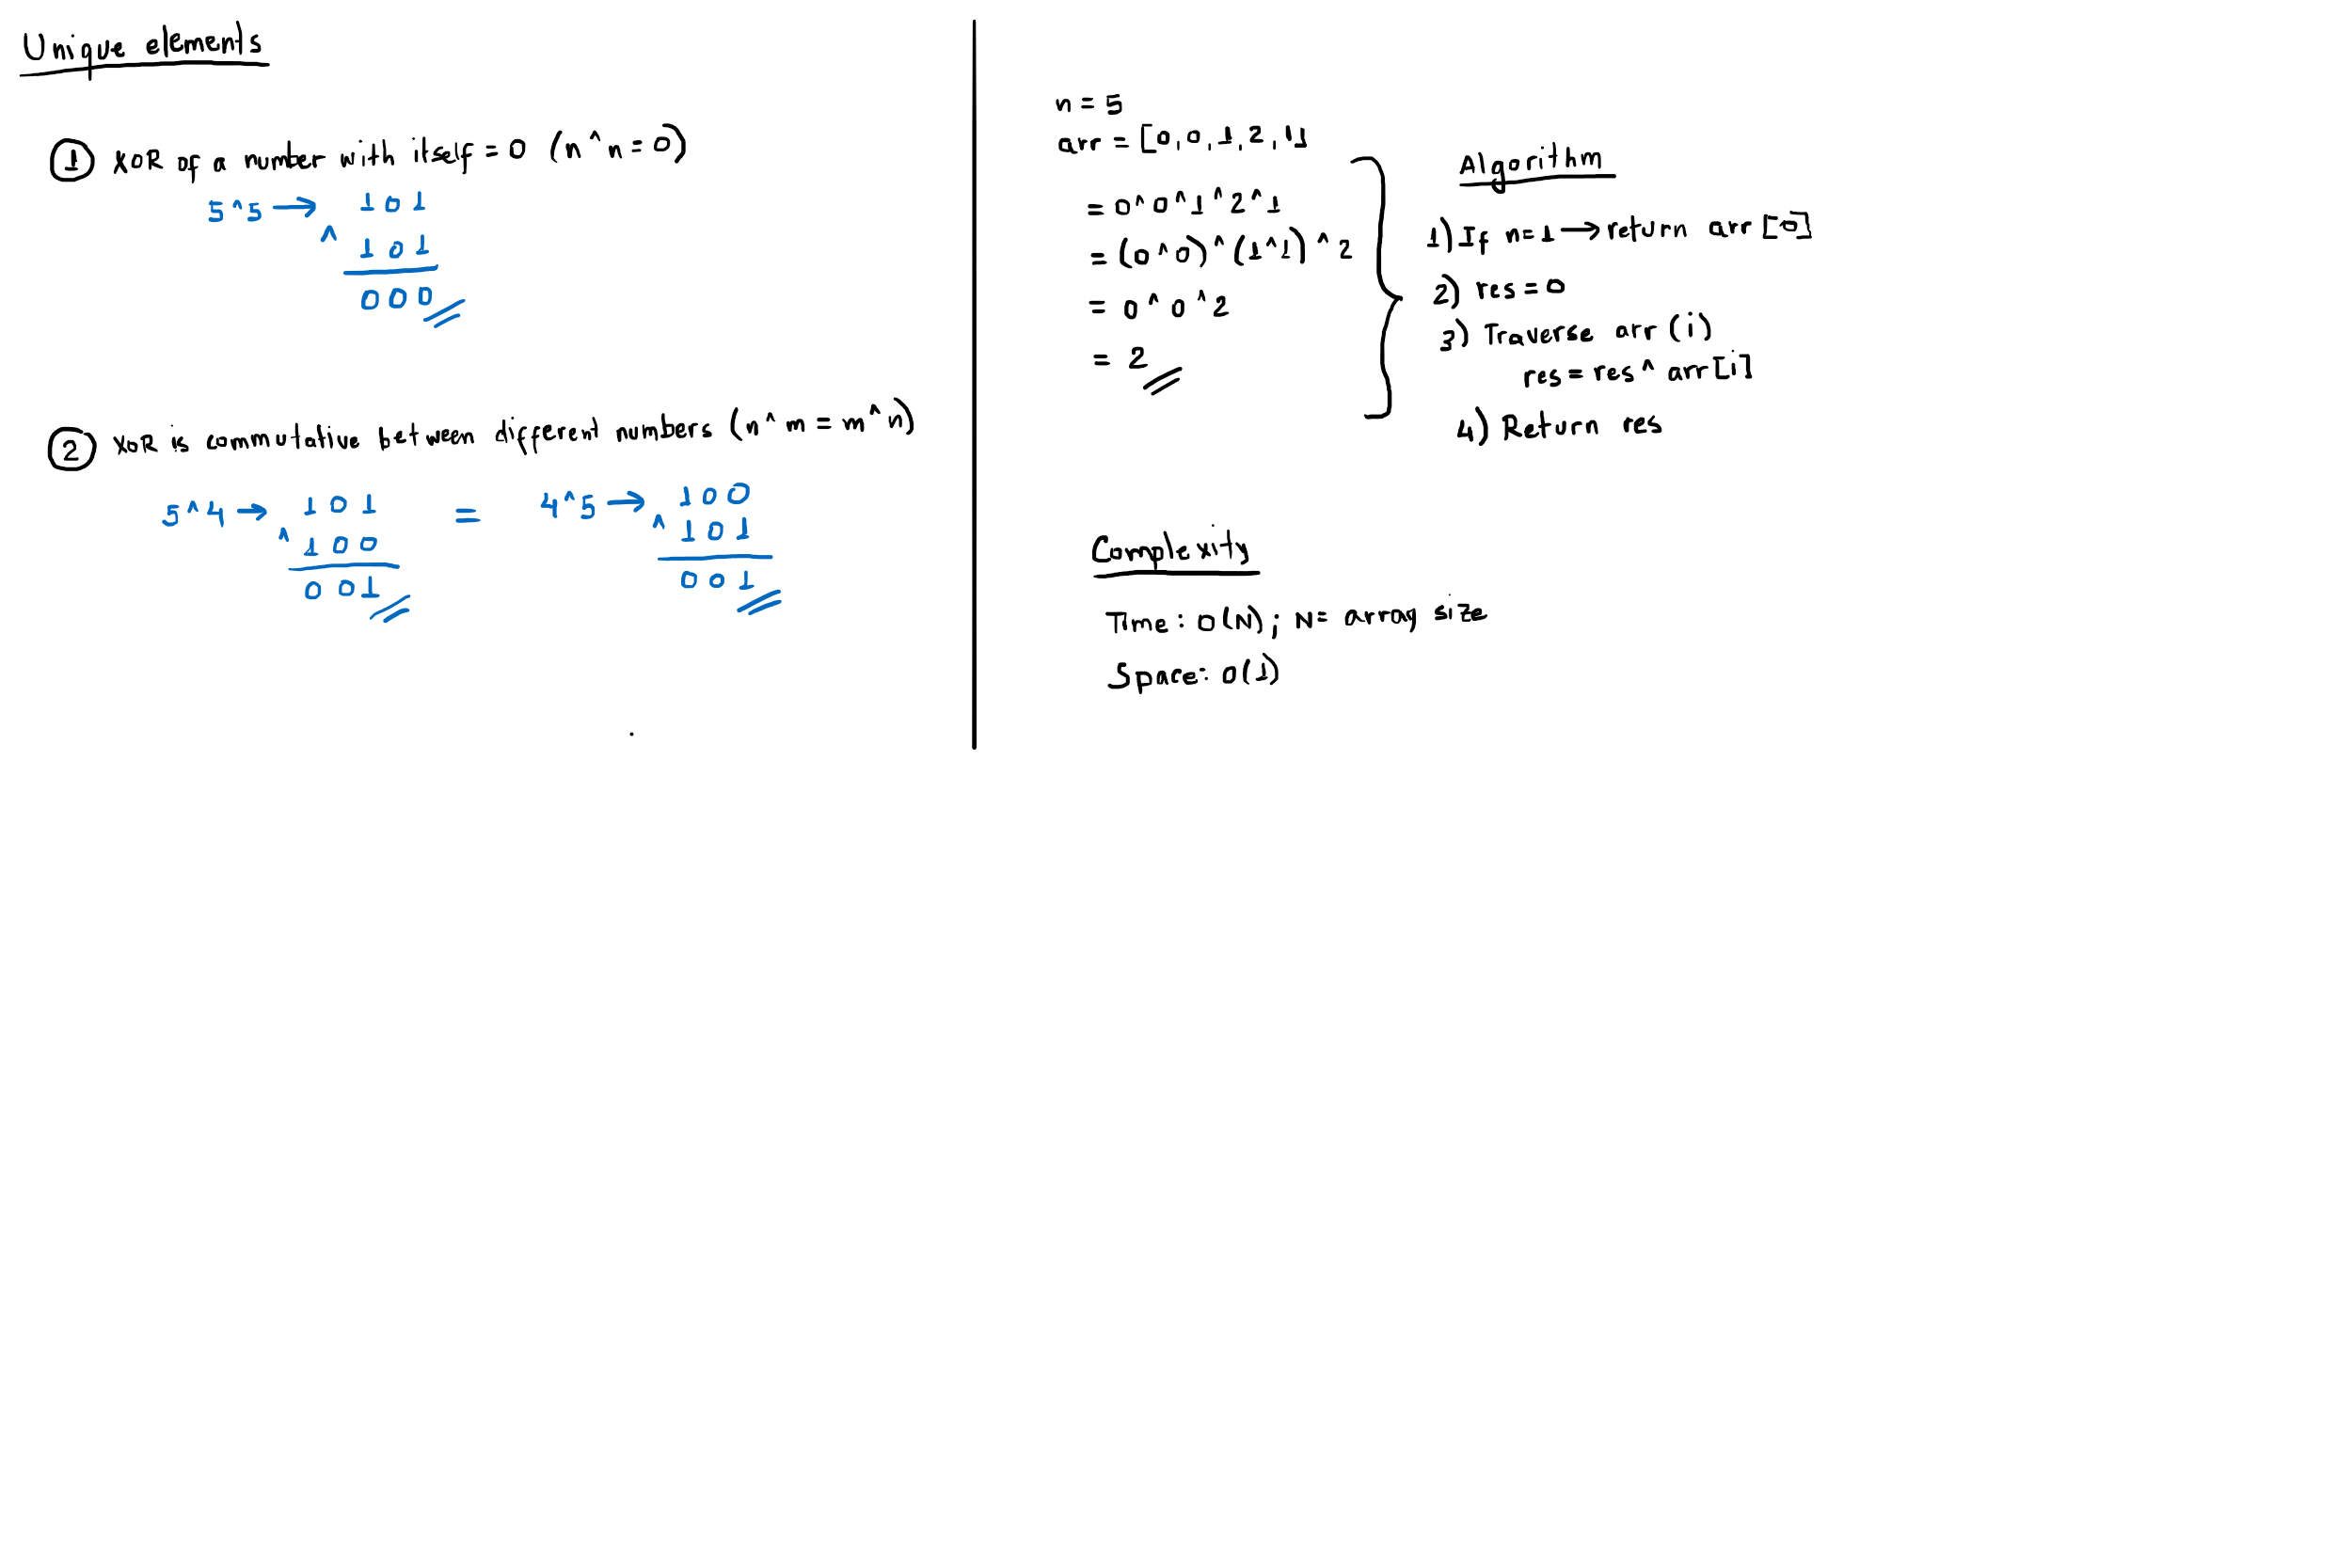 Unique elements
① XOR of a number with itself = 0 (n^n = 0)
5^5 → 101
^ 101
000
② XOR is commutative between different numbers (n^m = m^n)
5^4 → 101 = 4^5 → 100
^ 100 ^ 101
001 001
n = 5
arr = [0,0,1,2,1]
= 0^0^1^2^1
= (0^0)^(1^1)^2
= 0^0^2
= 2
Algorithm
1) If n=1 → return arr[0]
2) res = 0
3) Traverse arr (i)
res = res ^ arr[i]
4) Return res
Complexity
Time: O(N); N= array size
Space: O(1)